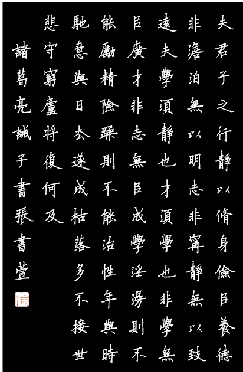 夫君子之行靜以脩身儉㠯養德
非澹泊無以明志非寧靜無以致
遠夫學須靜也才須學也非學無
㠯廣才非志無㠯成學淫漫則不
能勵精險躁則不能治性年與時
馳意與日去遂成枯落多不接世
悲守窮廬將復何及
諸葛亮誡子書張書萱